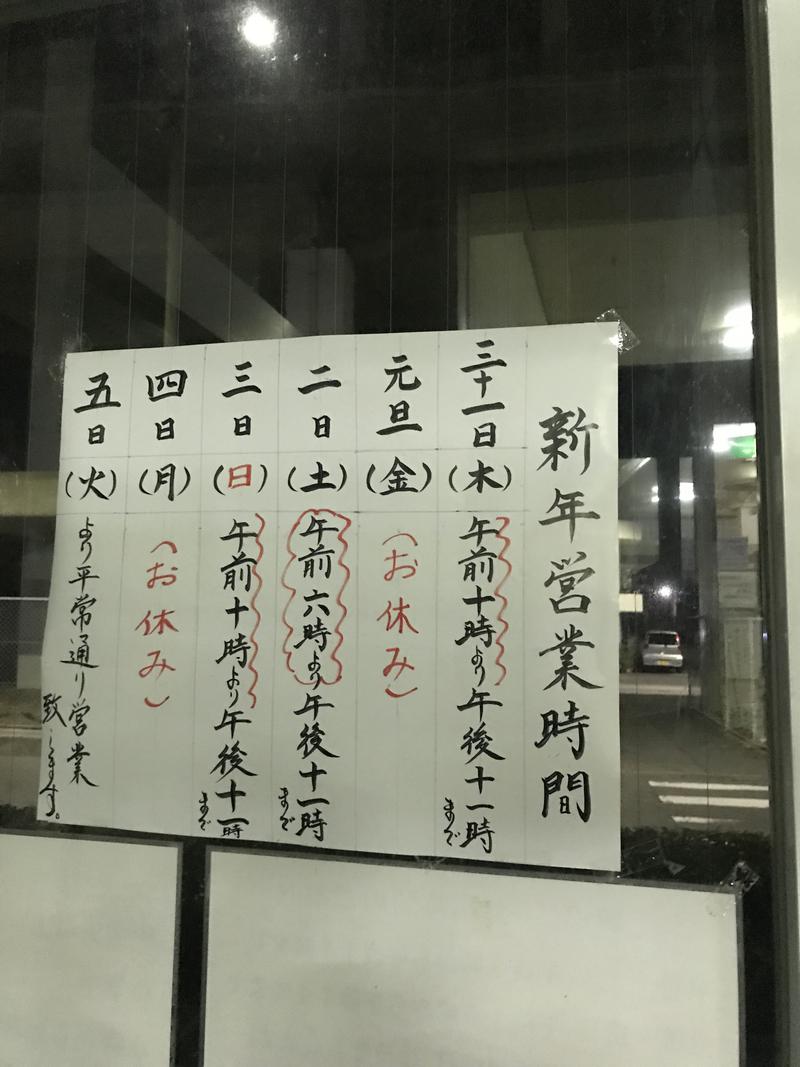 新年営業時間
三十一日(木)午前十時より午後十一時まで
元旦(金)(お休み)
二日(土)午前六時より午後十一時まで
三日(日)午前十時より午後十一時まで
四日(月)(お休み)
五日(火)より平常通り営業
致します。